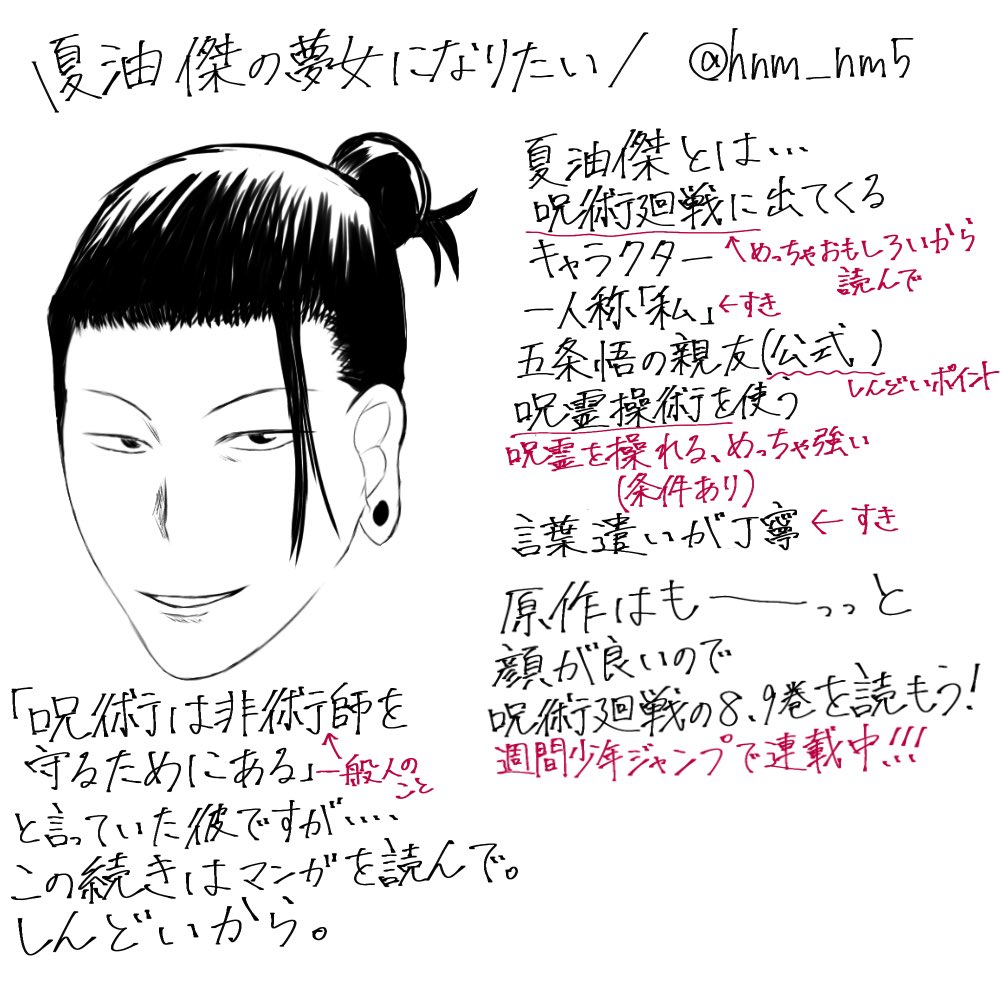 \夏油傑の夢女になりたい/ @hnm_nm5
夏油傑とは…
呪術廻戦に出てくる
キャラクター
↑めっちゃおもしろいから
読んで
一人称「私」←すき
五条悟の親友(公式)
しんどいポイント
呪霊操術を使う
呪霊を操れる、めっちゃ強い
(条件あり)
言葉遣いが丁寧←すき
原作はもーーっっと
顔が良いので
呪術廻戦の8.9巻を読もう!
週間少年ジャンプで連載中!!!
「呪術は非術師を
守るためにある」
↑一般人の
こと
と言っていた彼ですが….
この続きはマンガを読んで。
しんどいから。